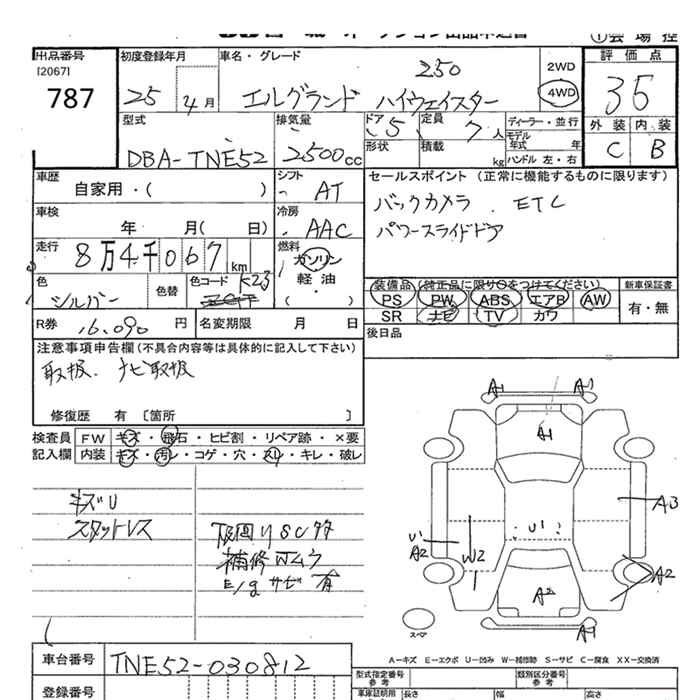 出品番号
[2067]
787
初度登録年月
25 4月
車名・グレード
250
エルグランド ハイウェイスター
2WD
4WD
評価点
35
型式
DBA-TNE52
排気量
2500cc
ドア 5
形状
定員 7人
積載 kg
ディーラー・並行
モデル年式 年
ハンドル 左・右
外装 内装
C B
車歴
自家用・( )
シフト
AT
セールスポイント (正常に機能するものに限ります)
バックカメラ . ETC
パワースライドドア
車検
年 月( 日)
冷房
AAC
走行
8万4千067 km
燃料
ガソリン
軽・油
( )
色
シルバー
色替
色コード K23
装備品
PS PW ABS エアB AW
SR ナビ TV カワ
新車保証書
有・無
R券 16,090 円
名変期限 月 日
後日品
注意事項申告欄 (不具合内容等は具体的に記入して下さい)
取扱. ナビ取扱
修復歴 有 〔箇所 〕
検査員 FW キズ・飛石・ヒビ割・リペア跡・×要
記入欄 内装 キズ・汚レ・コゲ・穴・スレ・キレ・破レ
キズU
スタットレス
下廻りSCタタ
E/gサビ有
A1 A1
A1
A3
U1
U1
A2
W2
A2
A2
A1
スペア
A-キズ E-エクボ U-凹み W-補修跡 S-サビ C-腐食 XX-交換済
車台番号 TNE52-030812
登録番号
型式指定番号 参考
類別区分番号 参考
長さ 幅 高さ